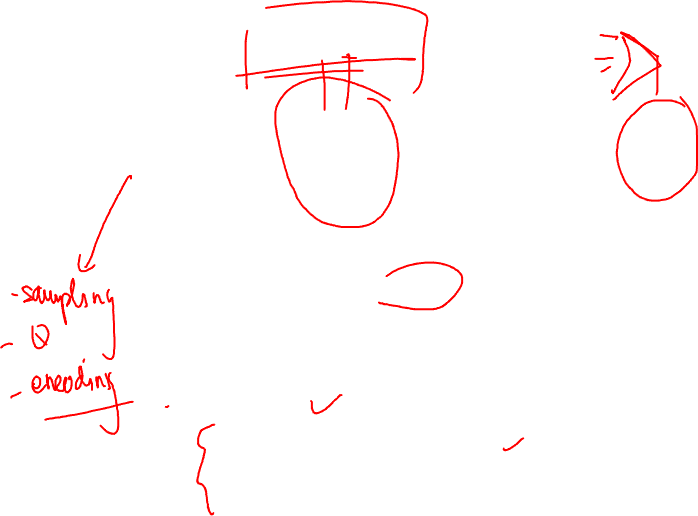 - sampling
- Q
- encoding